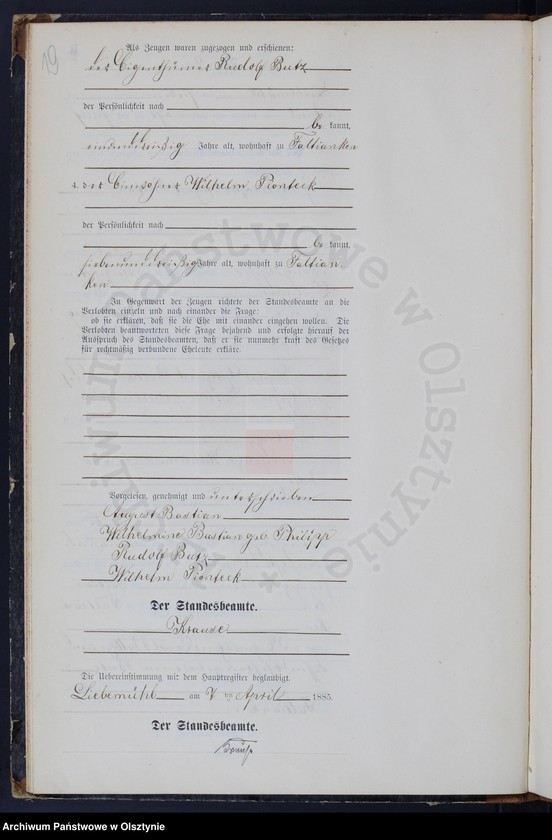 19
Als Zeugen waren zugezogen und erschienen:
der Eigenthümer Rudolf Butz
der Persönlichkeit nach
be kannt,
einunddreißig Jahre alt, wohnhaft zu Taltianken
4. der Einwohner Wilhelm Pionteck
der Persönlichkeit nach
be kannt,
siebenunddreißig Jahre alt, wohnhaft zu Faltian
ken
In Gegenwart der Zeugen richtete der Standesbeamte an die
Verlobten einzeln und nach einander die Frage:
ob sie erklären, daß sie die Ehe mit einander eingehen wollen. Die
Verlobten beantworteten diese Frage bejahend und erfolgte hierauf der
Ausspruch des Standesbeamten, daß er sie nunmehr kraft des Gesetzes
für rechtmäßig verbundene Eheleute erkläre.
Vorgelesen, genehmigt und unterschrieben
August Bastian
Wilhelmine Bastian geb Philipp
Rudolf Butz
Wilhelm Pionteck
Der Standesbeamte.
Krause
Die Uebereinstimmung mit dem Hauptregister beglaubigt
Liebemühl am 7 ten April 1885.
Der Standesbeamte.
Krause
Archiwum Państwowe w Olsztynie
Archiwum Państwowe w Olsztynie